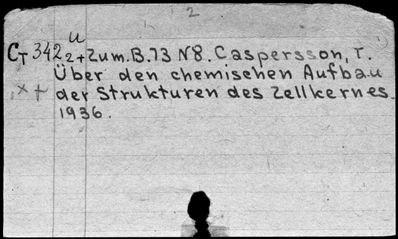 2
u
Ст 342 2+Zum.B.73 N8. Caspersson, T.
Über den chemischen Aufbau
x+ der Strukturen des Zellkernes.
1936.